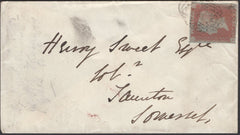 Henry Sweet Esqre
Solr
Taunton
Somerset